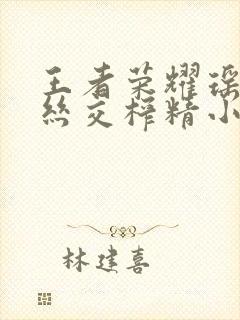 王者荣耀瑶
丝交榨精小
林建喜